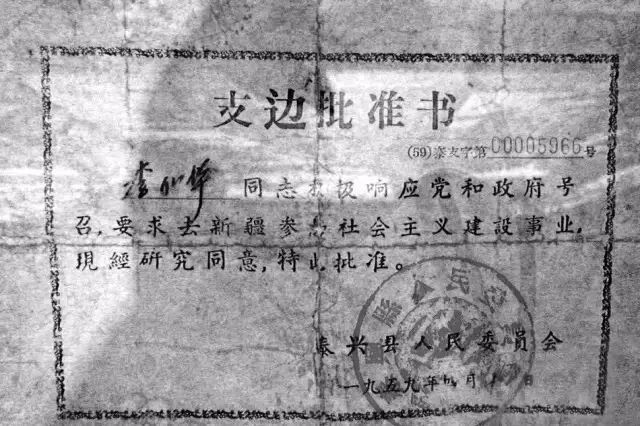 支边批准书
(59)泰支字第00005966号
李 同志积极响应党和政府号
召,要求去新疆参加社会主义建設事业,
現經研究同意,特此批准。
泰兴县人民委員会
一九五九年 月 日